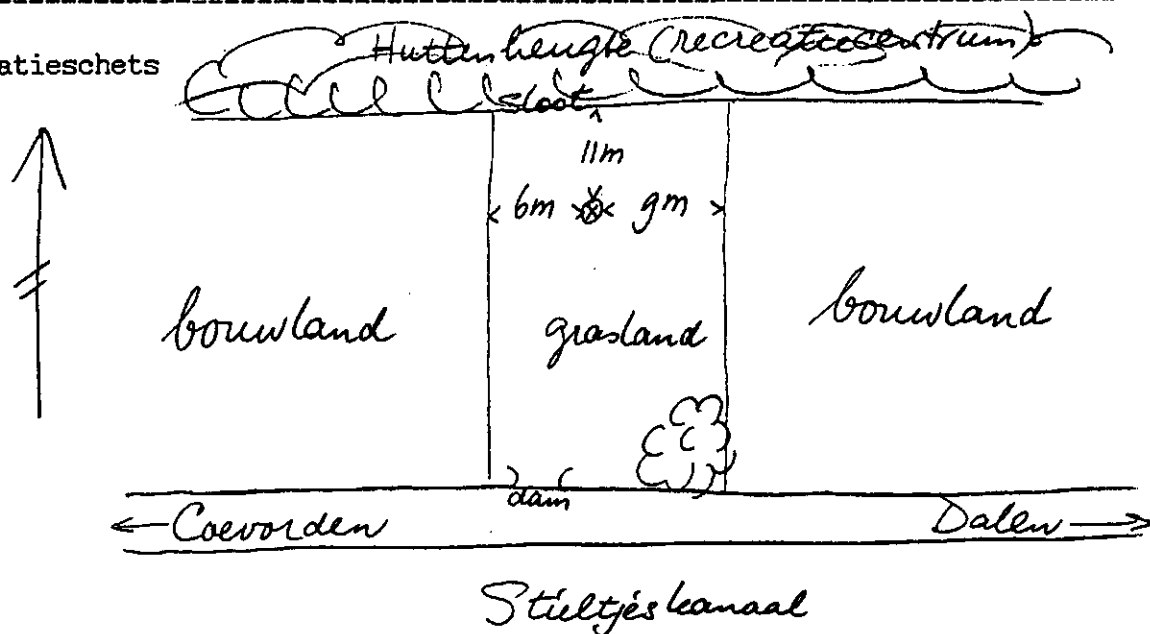 Huttenheugte (recreatiecentrum)
atieschets
sloot
11m
6m 9m
bouwland grasland bouwland
dam
Coevorden Dalen
Stieltjeskanaal